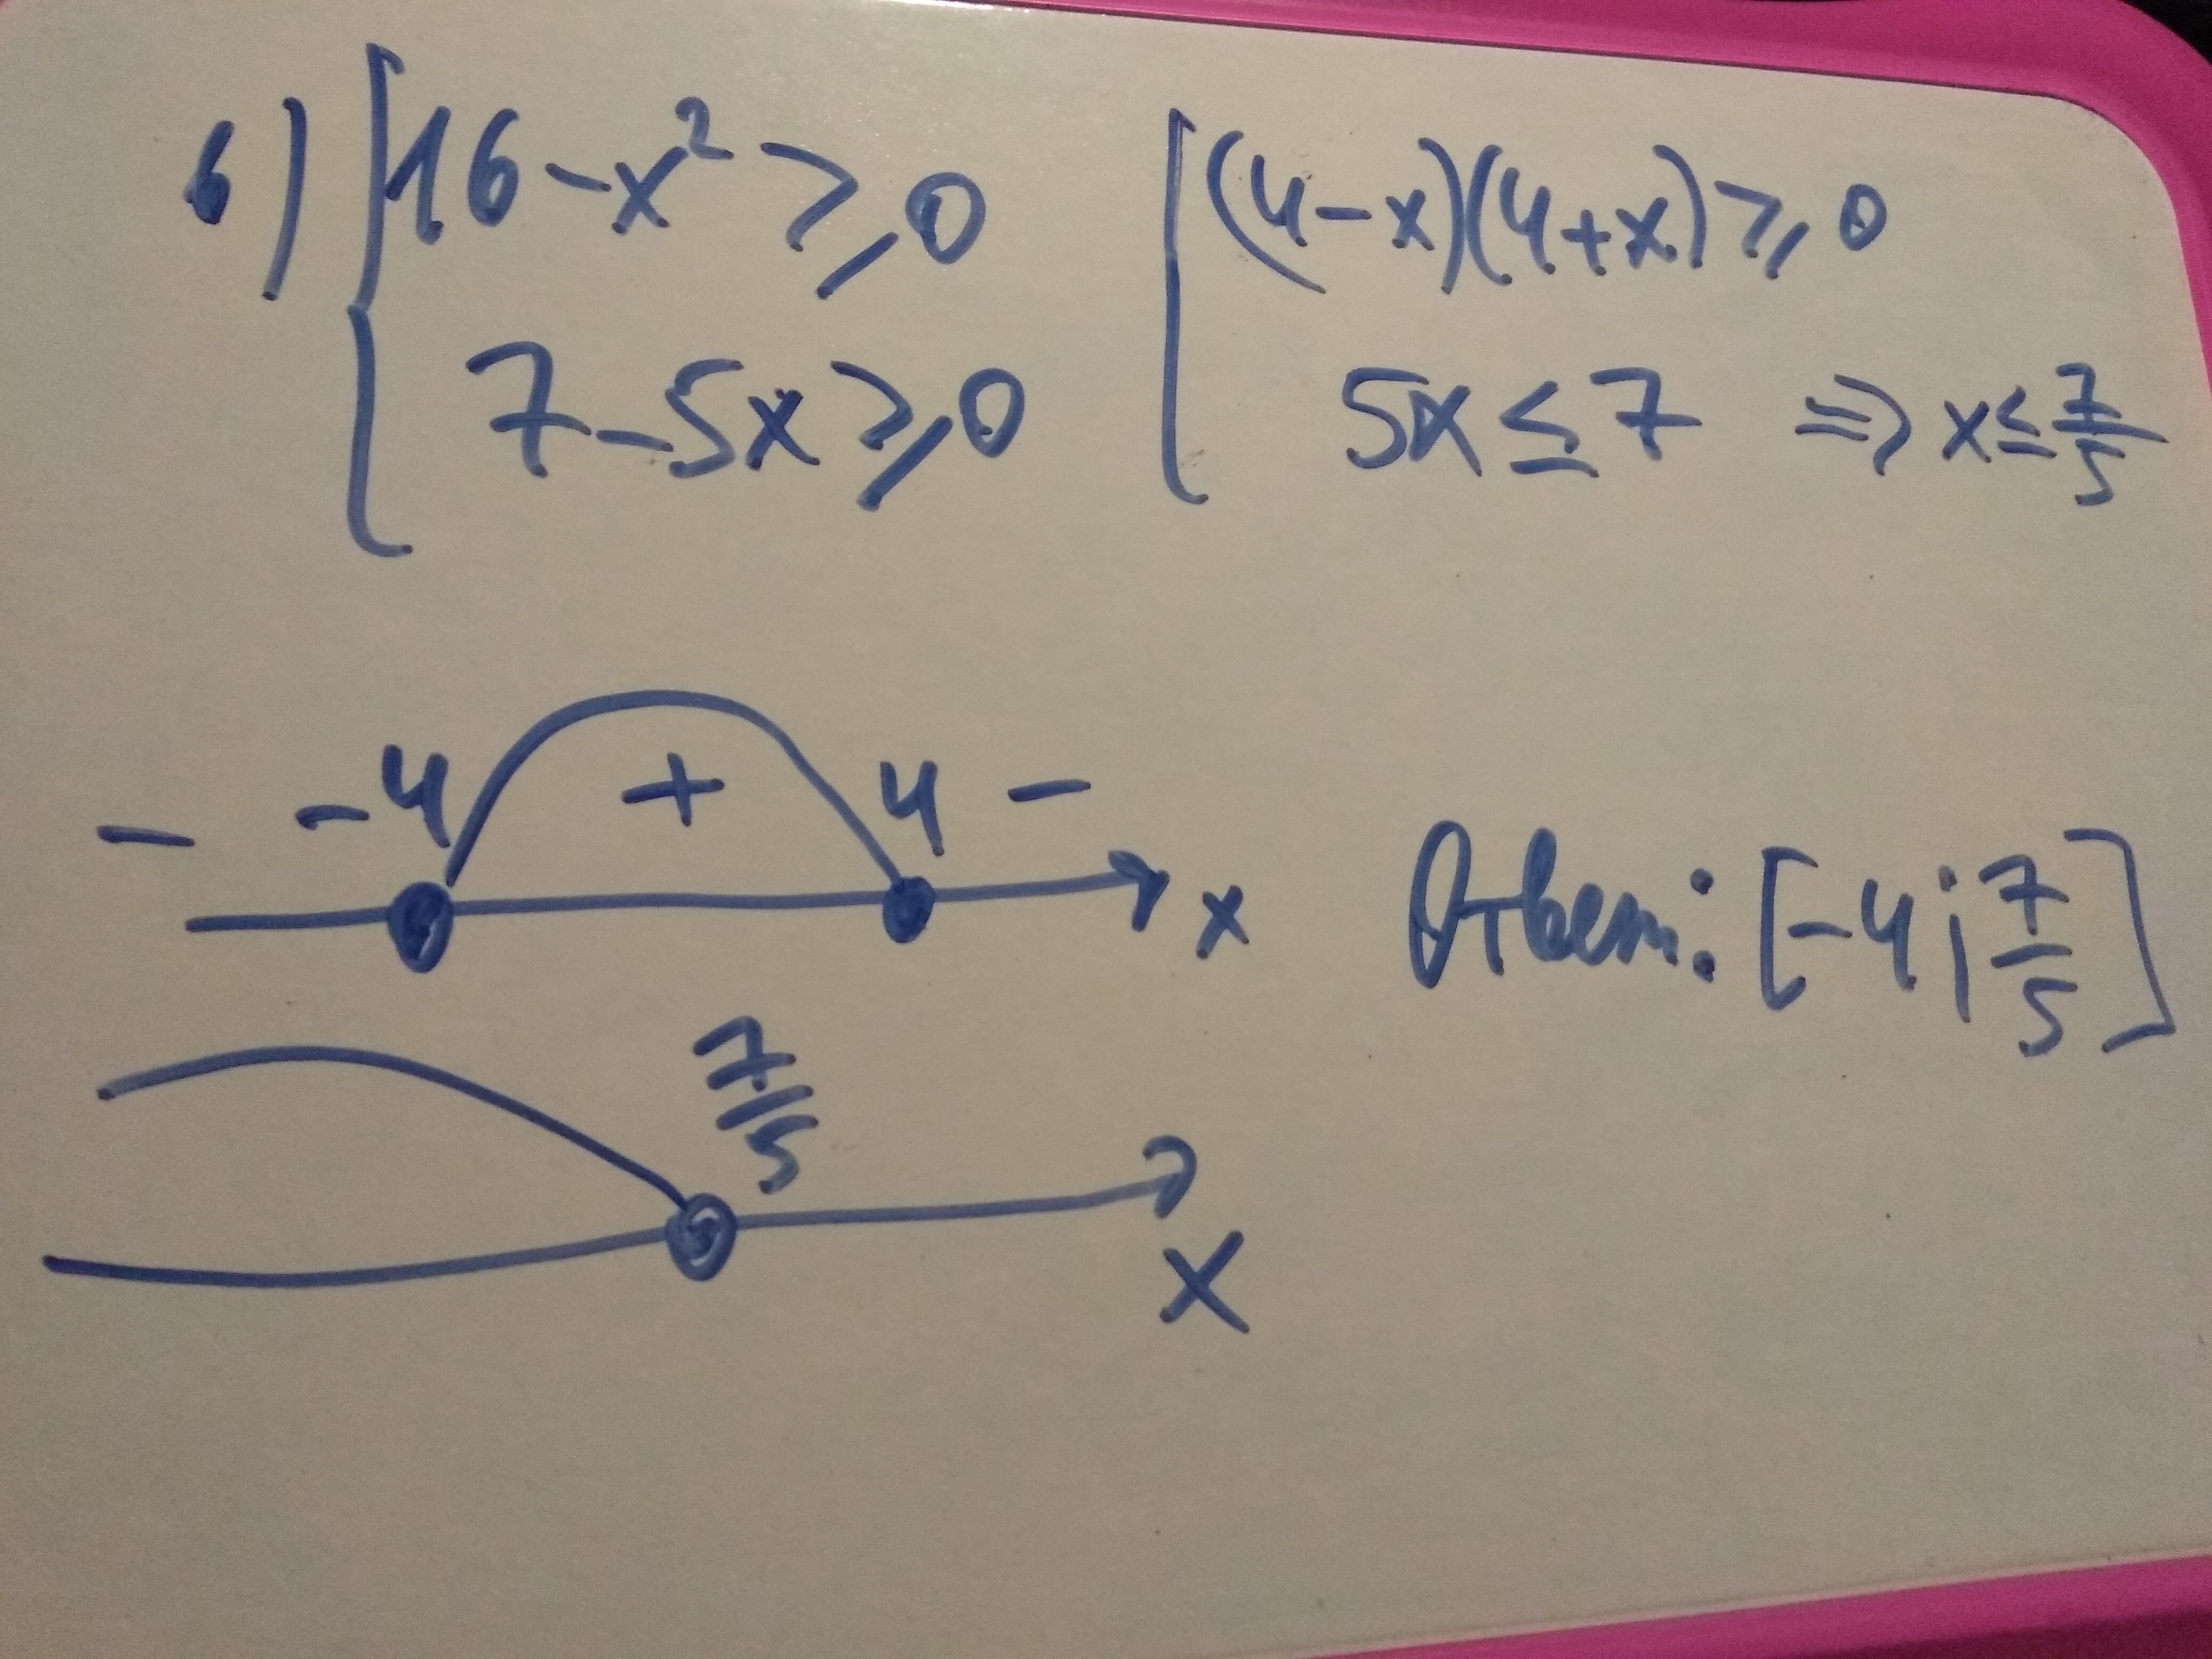 б) { 16-x² ≥ 0 [ (4-x)(4+x) ≥ 0
7-5x ≥ 0 5x ≤ 7 ⇒ x ≤ 7/5
- -4 + 4 -
x
Ответ: [-4; 7/5]
7/5
x